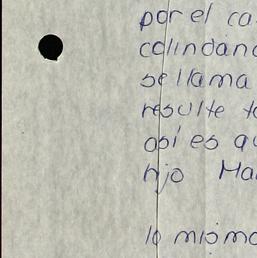 por el ca
colindanc
se llama
resulte to
así es qu
hijo Mar
lo mismo